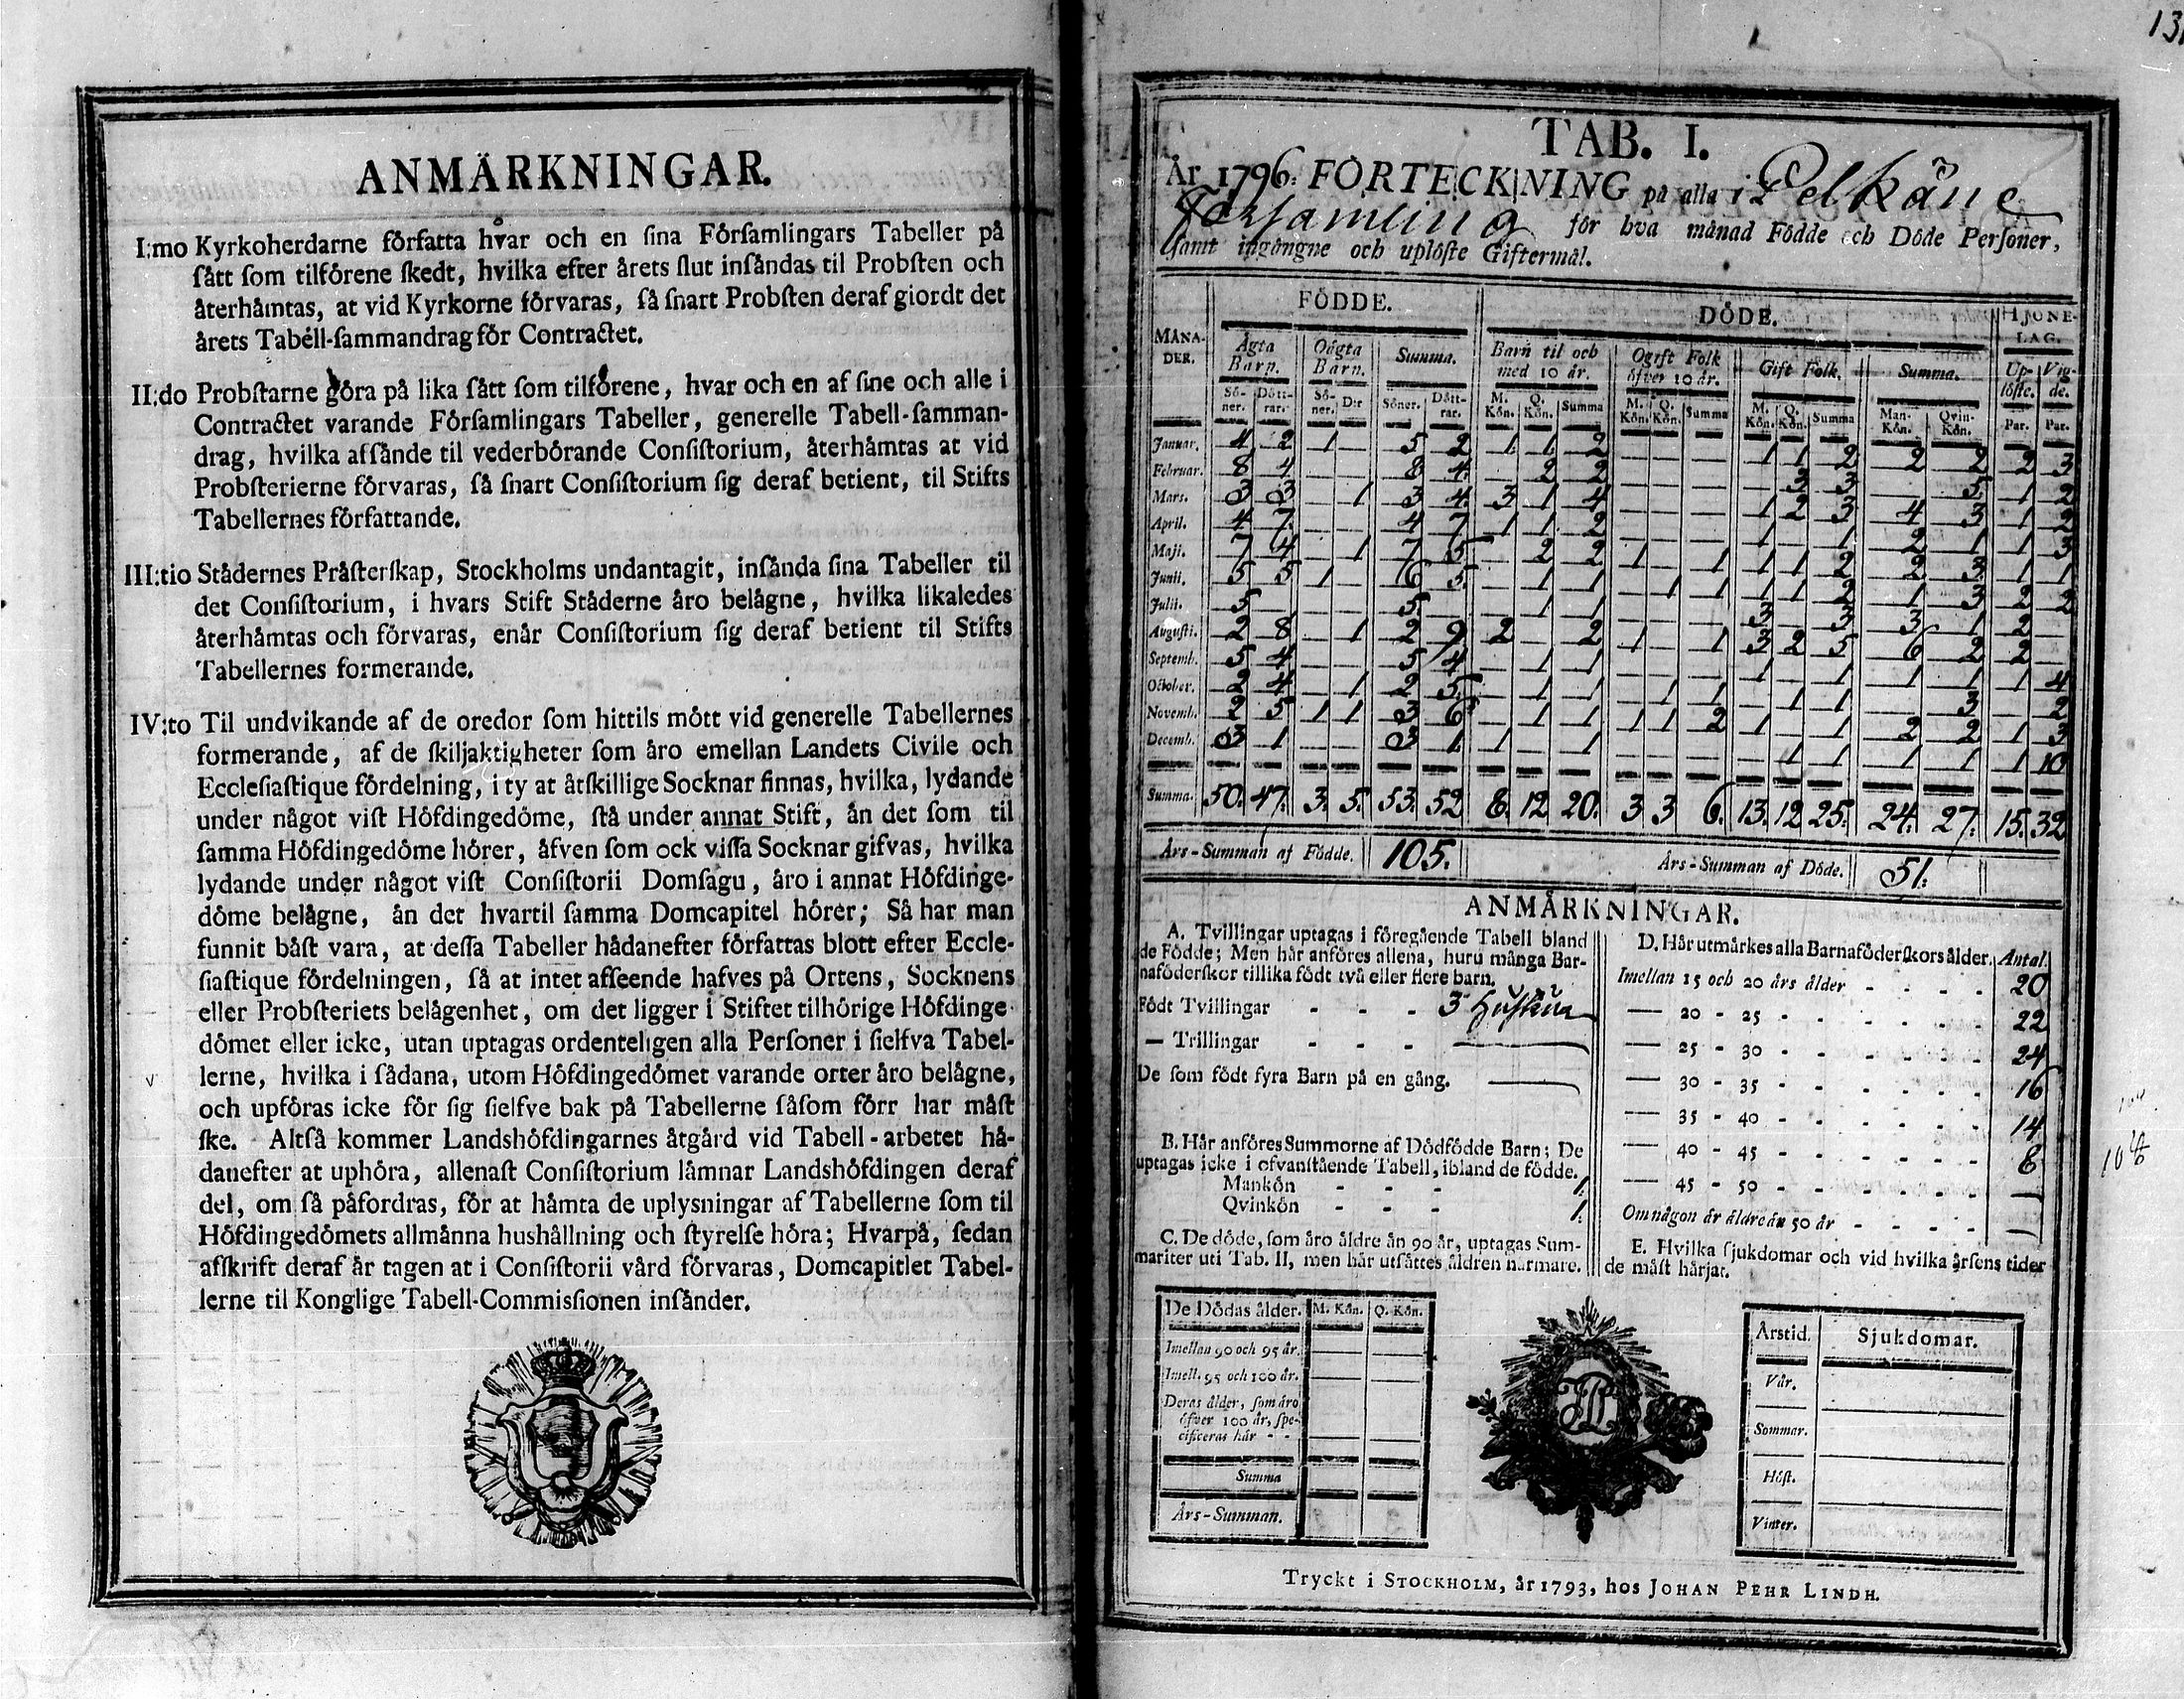 ANMÄRKNINGAR.
I:mo Kyrkoherdarne författa hvar och en ſina Förſamlingars Tabeller på
ſätt ſom tilförene ſkedt, hvilka efter årets ſlut inſändas til Probſten och
återhämtas, at vid Kyrkorne förvaras, ſå ſnart Probſten deraf giordt det
årets Tabell-ſammandrag för Contractet.
II:do Probſtarne göra på lika ſätt ſom tilförene, hvar och en af ſine och alle i
Contractet varande Förſamlingars Tabeller, generelle Tabell-ſamman-
drag, hvilka afſände til vederbörande Conſiſtorium, återhämtas at vid
Probſterierne förvaras, ſå ſnart Conſiſtorium ſig deraf betient, til Stifts
Tabellernes författande.
III:tio Städernes Präſterſkap, Stockholms undantagit, inſända ſina Tabeller til
det Conſiſtorium, i hvars Stift Städerne äro belägne, hvilka likaledes
återhämtas och förvaras, enär Conſiſtorium ſig deraf betient til Stifts
Tabellernes formerande.
IV:to Til undvikande af de oredor ſom hittils mött vid generelle Tabellernes
formerande, af de ſkiljaktigheter ſom äro emellan Landets Civile och
Eccleſiaſtique fördelning, i ty at åtſkillige Socknar finnas, hvilka, lydande
under något viſt Höfdingedöme, ſtå under annat Stift, än det ſom til
ſamma Höfdingedöme hörer, äfven ſom ock viſſa Socknar gifvas, hvilka
lydande under något viſt Conſiſtorii Domſagu, äro i annat Höfdinge-
döme belägne, än det hvartil ſamma Domcapitel hörer; Så har man
funnit bäſt vara, at deſſa Tabeller hädanefter författas blott efter Eccle-
ſiaſtique fördelningen, ſå at intet afſeende hafves på Ortens, Socknens
eller Probſteriets belägenhet, om det ligger i Stiftet tilhörige Höfdinge
dömet eller icke, utan uptagas ordenteligen alla Perſoner i ſielfva Tabel-
lerne, hvilka i ſådana, utom Höfdingedömet varande orter äro belägne,
och upföras icke för ſig ſielfve bak på Tabellerne ſåſom förr har måſt
ſke. Altſå kommer Landshöfdingarnes åtgärd vid Tabell-arbetet hä-
danefter at uphöra, allenaſt Conſiſtorium lämnar Landshöfdingen deraf
del, om ſå påfordras, för at hämta de uplysningar af Tabellerne ſom til
Höfdingedömets allmänna hushållning och ſtyrelſe höra; Hvarpå, ſedan
afſkrift deraf är tagen at i Conſiſtorii vård förvaras, Domcapitlet Tabel-
lerne til Konglige Tabell-Commisſionen inſänder.
TAB. I.
År 1796. FÖRTECKNING på alla i Pelkäne
Forsamling för hva månad Födde och Döde Perſoner,
ſamt ingångne och uplöſte Giftermål.
MÅNA-DER. FÖDDE. DÖDE. HJONE-LAG.
Ägta Barn. Oägta Barn. Summa. Barn til och med 10 år. Ogift Folk öfver 10 år. Gift Folk. Summa. Up-löſte. Vig-de.
Sö-ner. Dött-rar. Sö-ner. D:r Söner. Dött-rar. M. Kön. Q. Kön. Summa M. Kön. Q. Kön. Summa M. Kön. Q. Kön. Summa Man-Kön. Qvin-Kön. Par. Par.
Januar. 4 2 1 — 5 2 1 1 2 — — — 1 1 2 2 2 2 3
Februar. 8 4 — — 8 4 — 2 2 — — — — 3 3 — 5 1 2
Mars. 3 3 — 1 3 4 3 1 4 — — — 1 2 3 4 3 1 2
April. 4 7 — — 4 7 1 1 2 — — — 1 — 1 2 1 1 3
Maji. 7 4 — 1 7 5 — 2 2 1 — 1 1 1 2 2 3 1 1
Junii. 5 5 1 — 6 5 — 1 1 — 1 1 1 1 2 1 3 2 2
Julii. 5 — — — 5 — — 1 1 — — — 3 — 3 3 1 2 —
Auguſti. 2 8 — 1 2 9 2 — 2 1 — 1 3 2 5 6 2 2 —
Septemb. 5 4 — — 5 4 — 1 1 — — — 1 — 1 1 1 1 4
October. 2 4 — 1 2 5 — 1 1 — 1 1 — 1 1 — 3 — 2
Novemb. 2 5 1 1 3 6 — 1 1 1 1 2 1 — 1 2 2 1 3
Decemb. 3 1 — — 3 1 1 — 1 — — — — 1 1 1 1 1 10
Summa. 50. 47. 3. 5. 53. 52 8. 12 20. 3 3 6. 13. 12 25. 24. 27. 15. 32
Års-Summan af Födde. 105. Års-Summan af Döde. 51.
ANMÄRKNINGAR.
A. Tvillingar uptagas i föregående Tabell bland
de Födde; Men här anföres allena, huru många Bar-
naföderſkor tillika födt två eller flere barn.
Födt Tvillingar - - - 3
— Trillingar - - - —
De ſom födt fyra Barn på en gång. —
B. Här anföres Summorne af Dödfödde Barn; De
uptagas icke i ofvanſtående Tabell, ibland de födde.
Mankön - - - 1.
Qvinkön - - - 1.
C. De döde, ſom äro äldre än 90 år, uptagas Sum-
mariter uti Tab. II, men här utſättes åldren närmare.
De Dödas ålder. M. Kön. Q. Kön.
Imellan 90 och 95 år.
Imell. 95 och 100 år.
Deras ålder, ſom äro
öfver 100 år, ſpe-
cificeras här - -
Summa
Års-Summan.
D. Här utmärkes alla Barnaföderſkors ålder. Antal.
Imellan 15 och 20 års ålder - - - - 20
— 20 - 25 - - - - - - 22
— 25 - 30 - - - - - - 24
— 30 - 35 - - - - - - 16
— 35 - 40 - - - - - - 14
— 40 - 45 - - - - - - 8
— 45 - 50 - - - - - - —
Om någon är äldre än 50 år - - - - —
E. Hvilka ſjukdomar och vid hvilka årſens tider
de mäſt härjat.
Årstid. Sjukdomar.
Vår.
Sommar.
Höſt.
Vinter.
Tryckt i STOCKHOLM, år 1793, hos JOHAN PEHR LINDH.